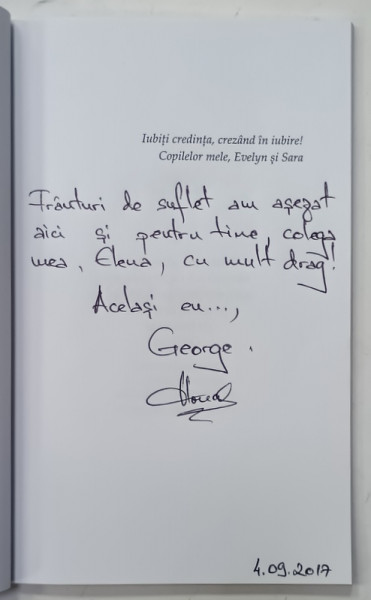 Iubiți credința, crezând în iubire!
Copilelor mele, Evelyn și Sara
Frânturi de suflet am așezat
aici și pentru tine, colega
mea, Elena, cu mult drag!
Același eu...,
George.
4.09.2017